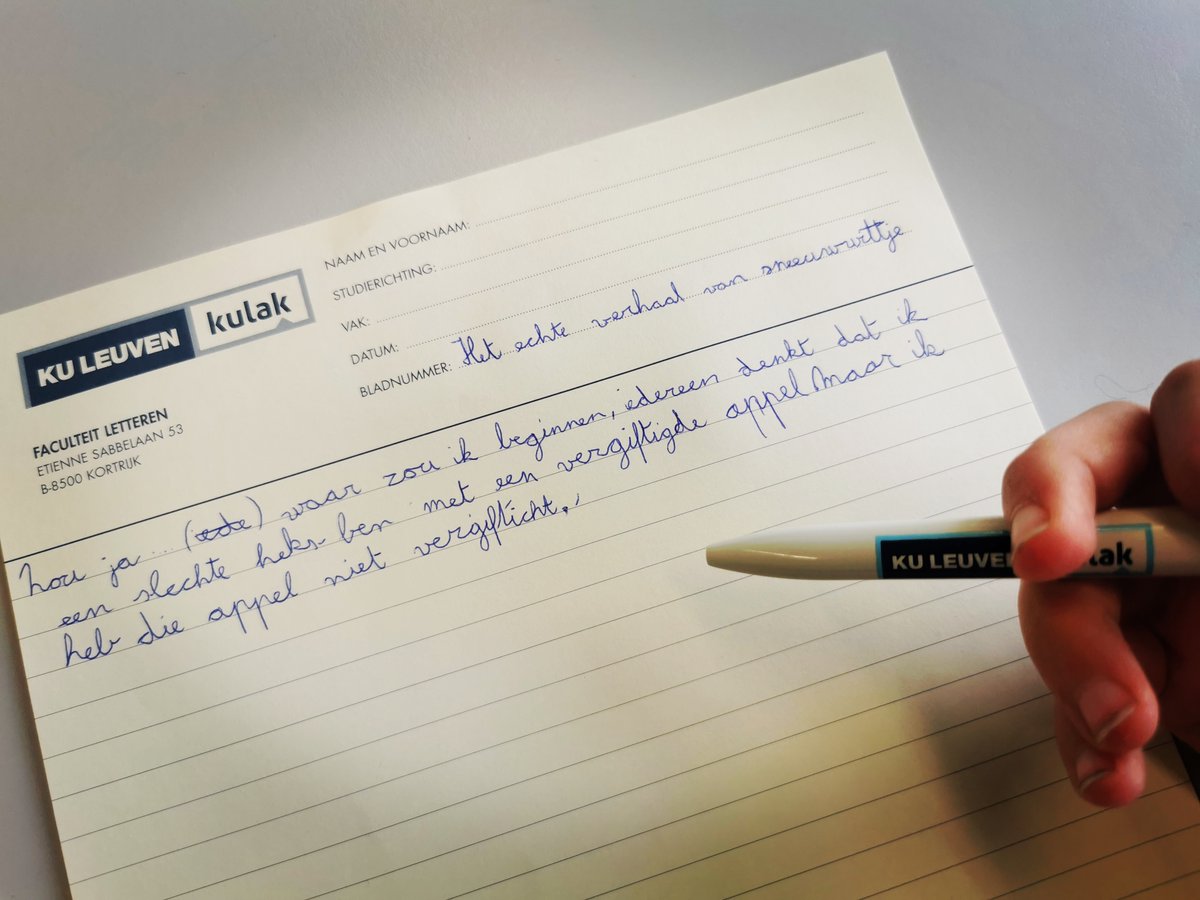 NAAM EN VOORNAAM:
STUDIERICHTING:
VAK:
DATUM:
BLADNUMMER: Het echte verhaal van sneeuwwittje
KU LEUVEN kulak
FACULTEIT LETTEREN
ETIENNE SABBELAAN 53
B-8500 KORTRIJK
hou ja ... ( ) waar zou ik beginnen, iedereen denkt dat ik
een slechte heks ben met een vergiftigde appel maar ik
heb die appel niet vergifticht.
KU LEUVEN kulak